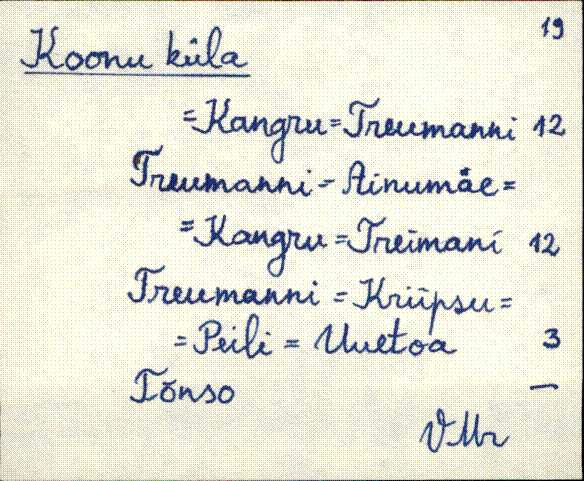 19
Koonu küla
=Kangru=Treumanni 12
Treumanni-Ainumäe=
=Kangru=Treimani 12
Treumanni=Kriipsu=
=Peili=Uuetoa 3
Tõnso —
VMr